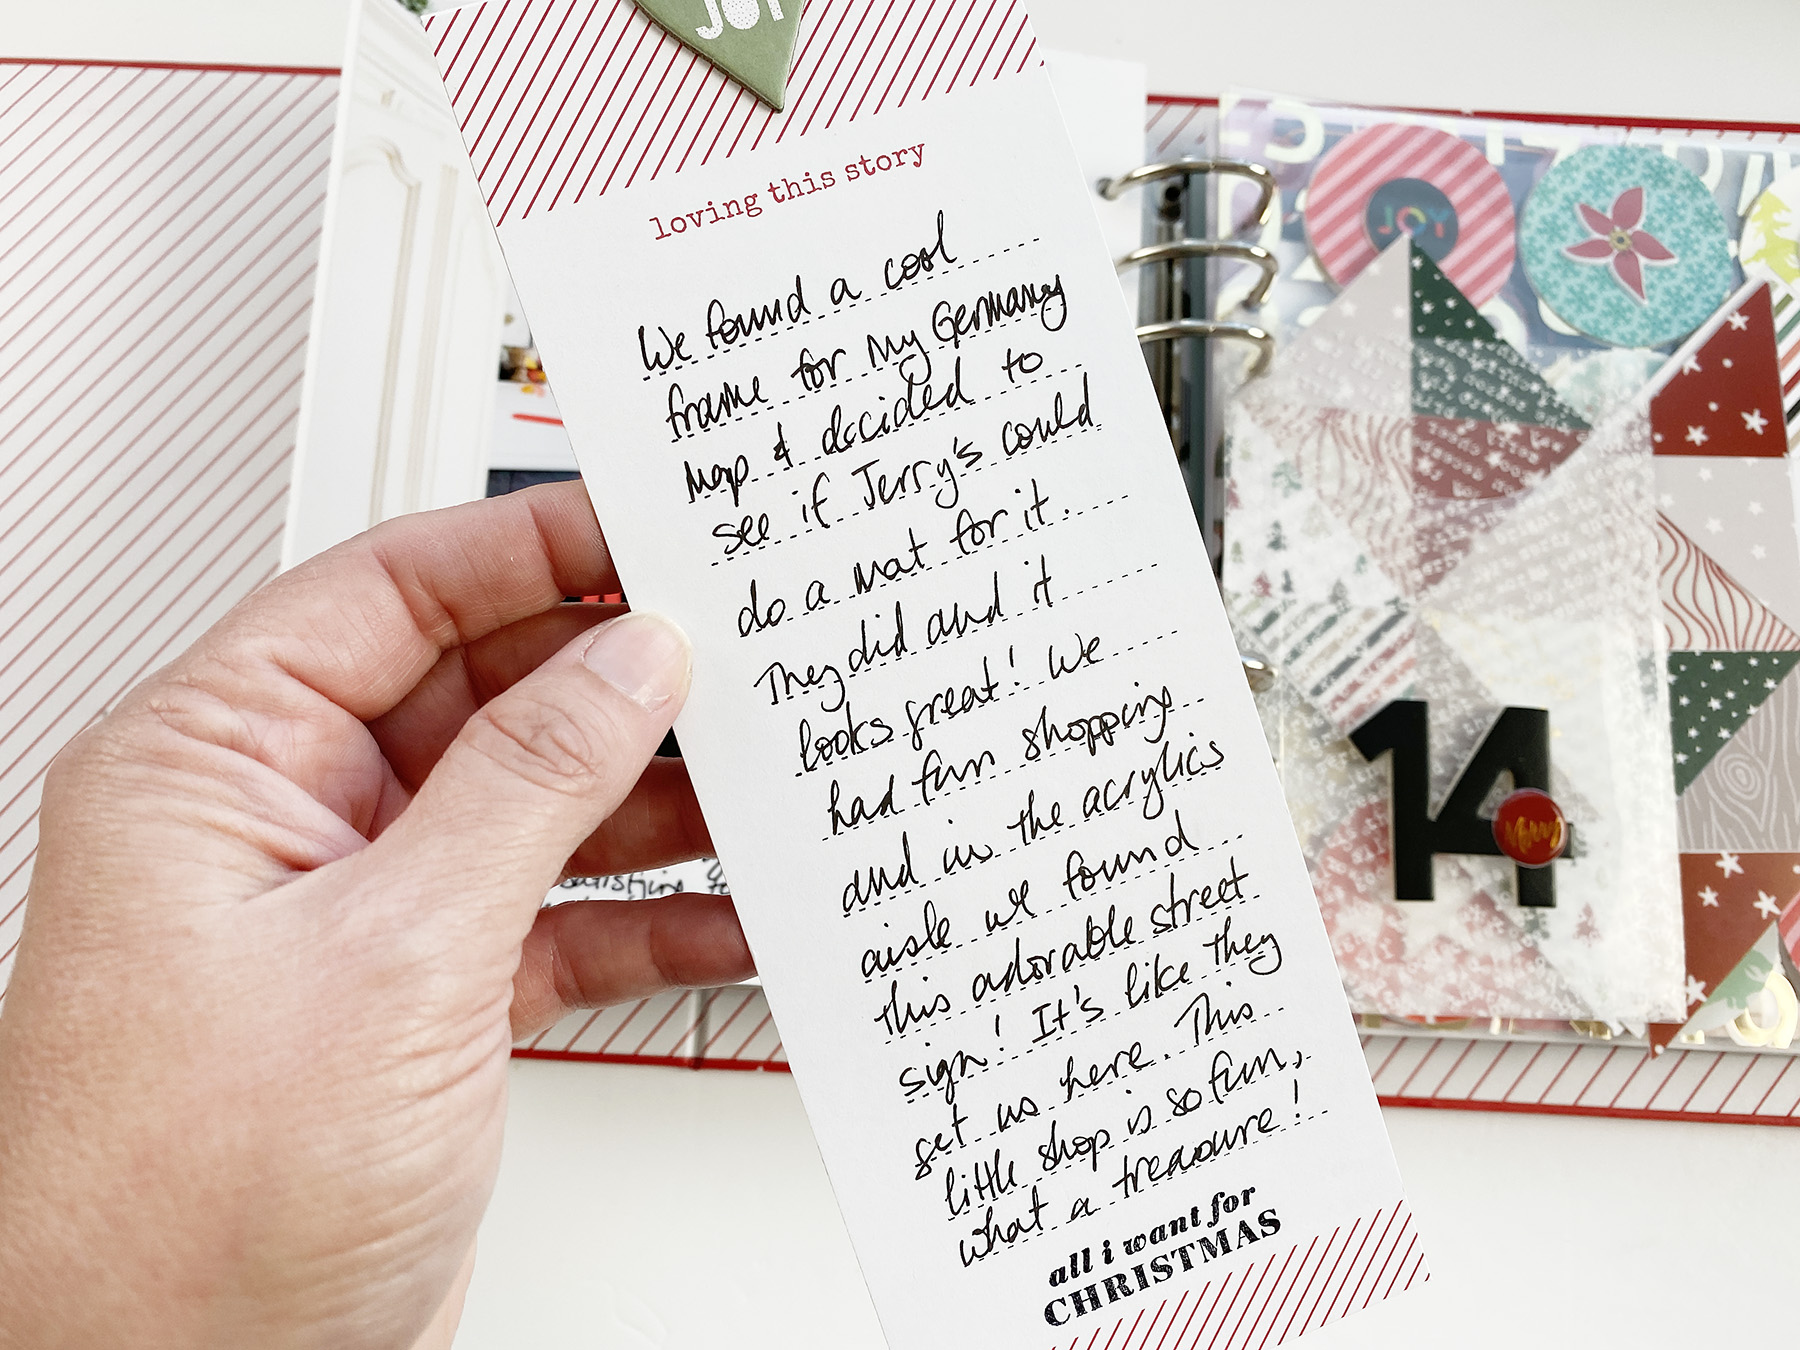 JOY
loving this story
We found a cool
frame for my Germany
map & decided to
see if Jerry's could
do a mat for it.
They did and it
looks great! We
had fun shopping
and in the acrylics
aisle we found
this adorable street
sign! It's like they
get us here. This
little shop is so fun,
what a treasure!
all i want for
CHRISTMAS
JOY
14
Merry